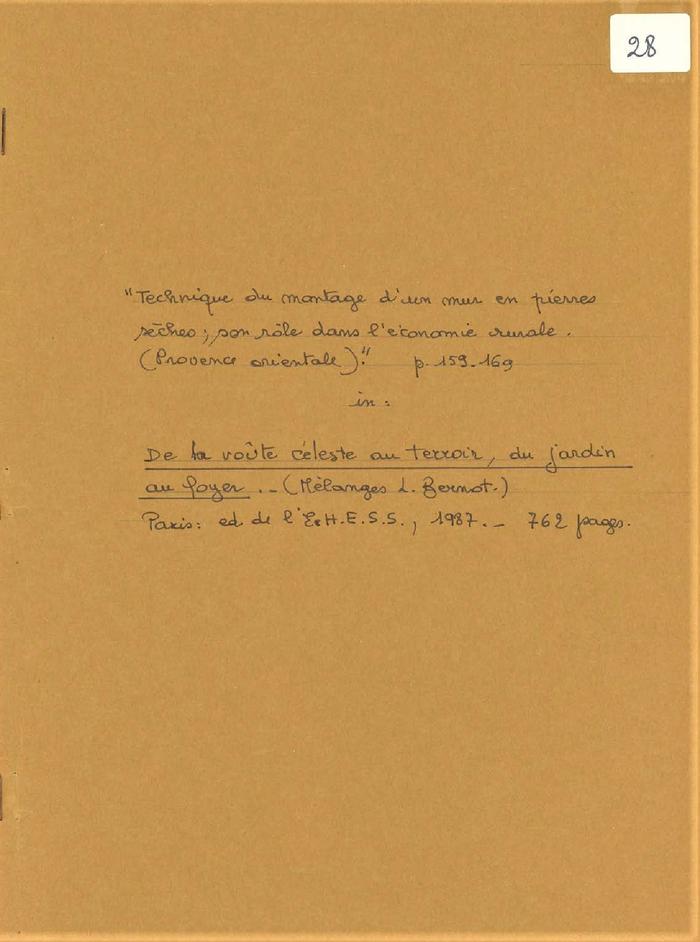 28
"Technique du montage d'un mur en pierres
sèches ; son rôle dans l'économie rurale.
(Provence orientale)." p. 159-169
in :
De la voûte céleste au terroir, du jardin
au foyer. - (Mélanges L. Bernot.)
Paris : ed de l'E.H.E.S.S., 1987. - 762 pages.